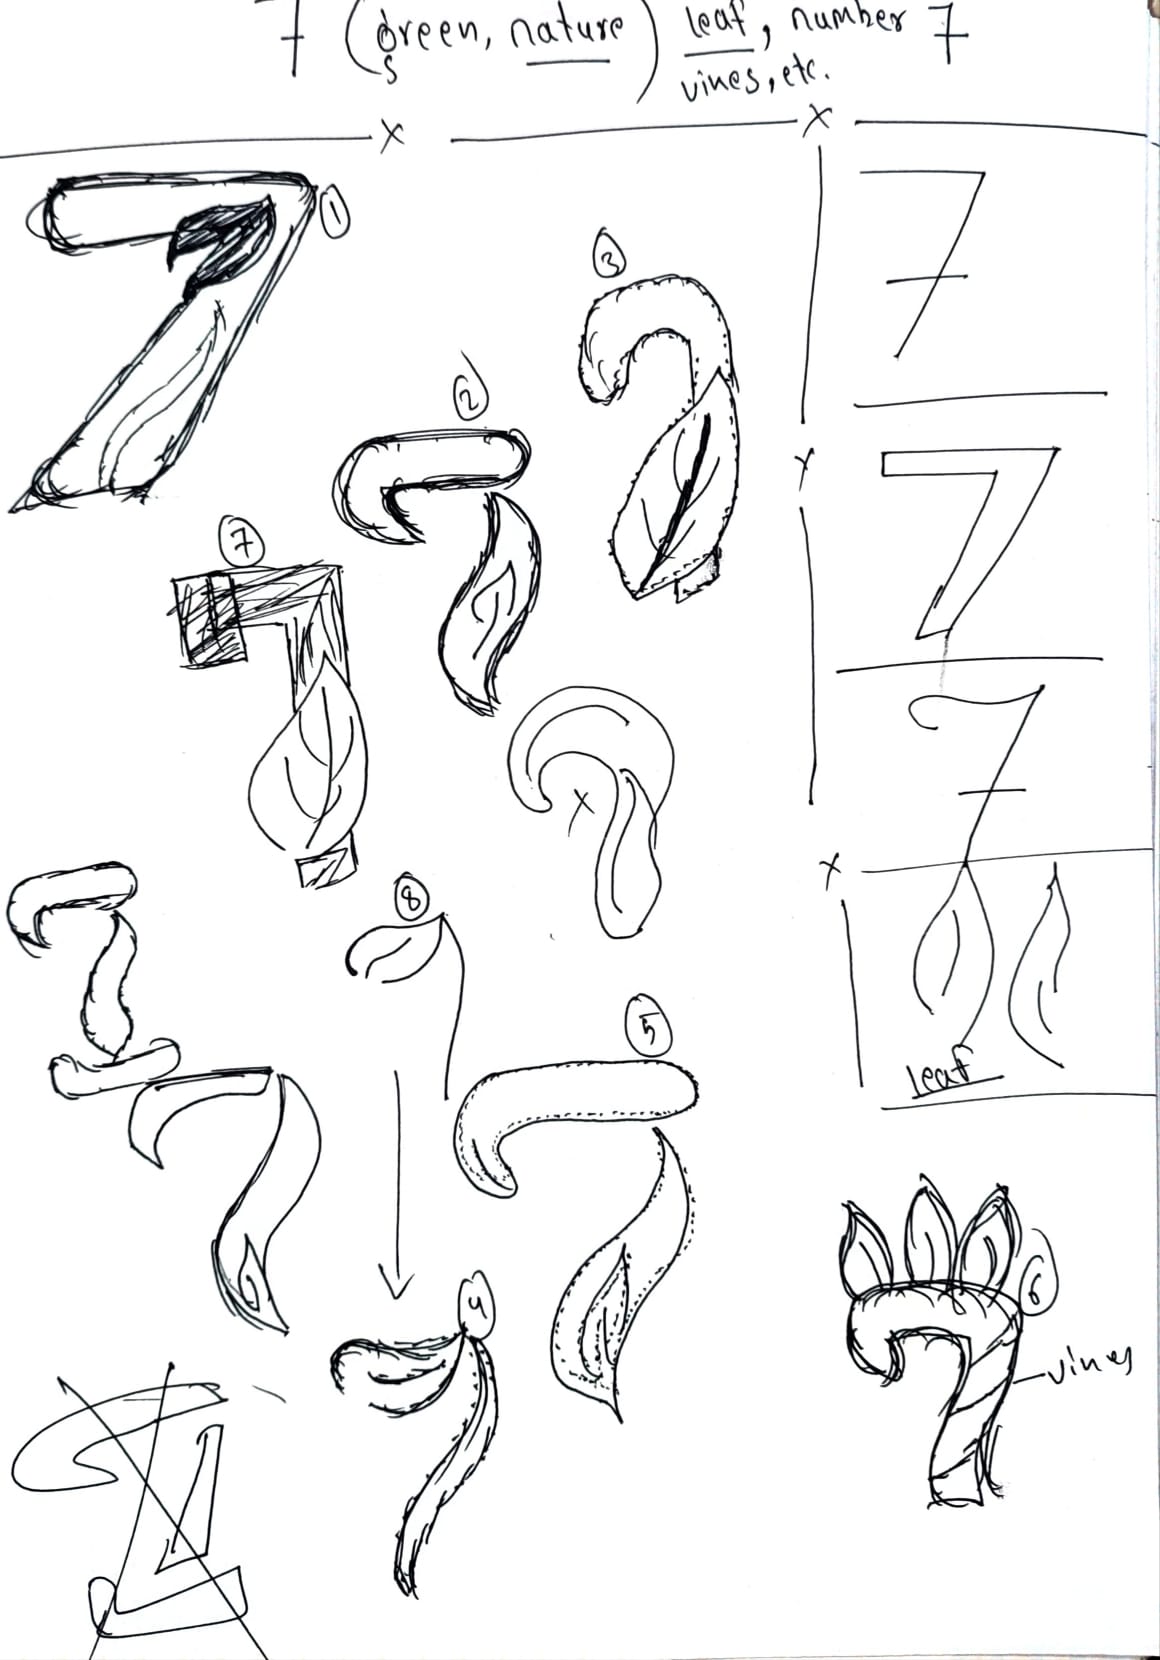 7 (green, nature) leaf, number 7
vines, etc.
1
3
7
2
7
7
7
8
7
5
leaf
6
vines
4